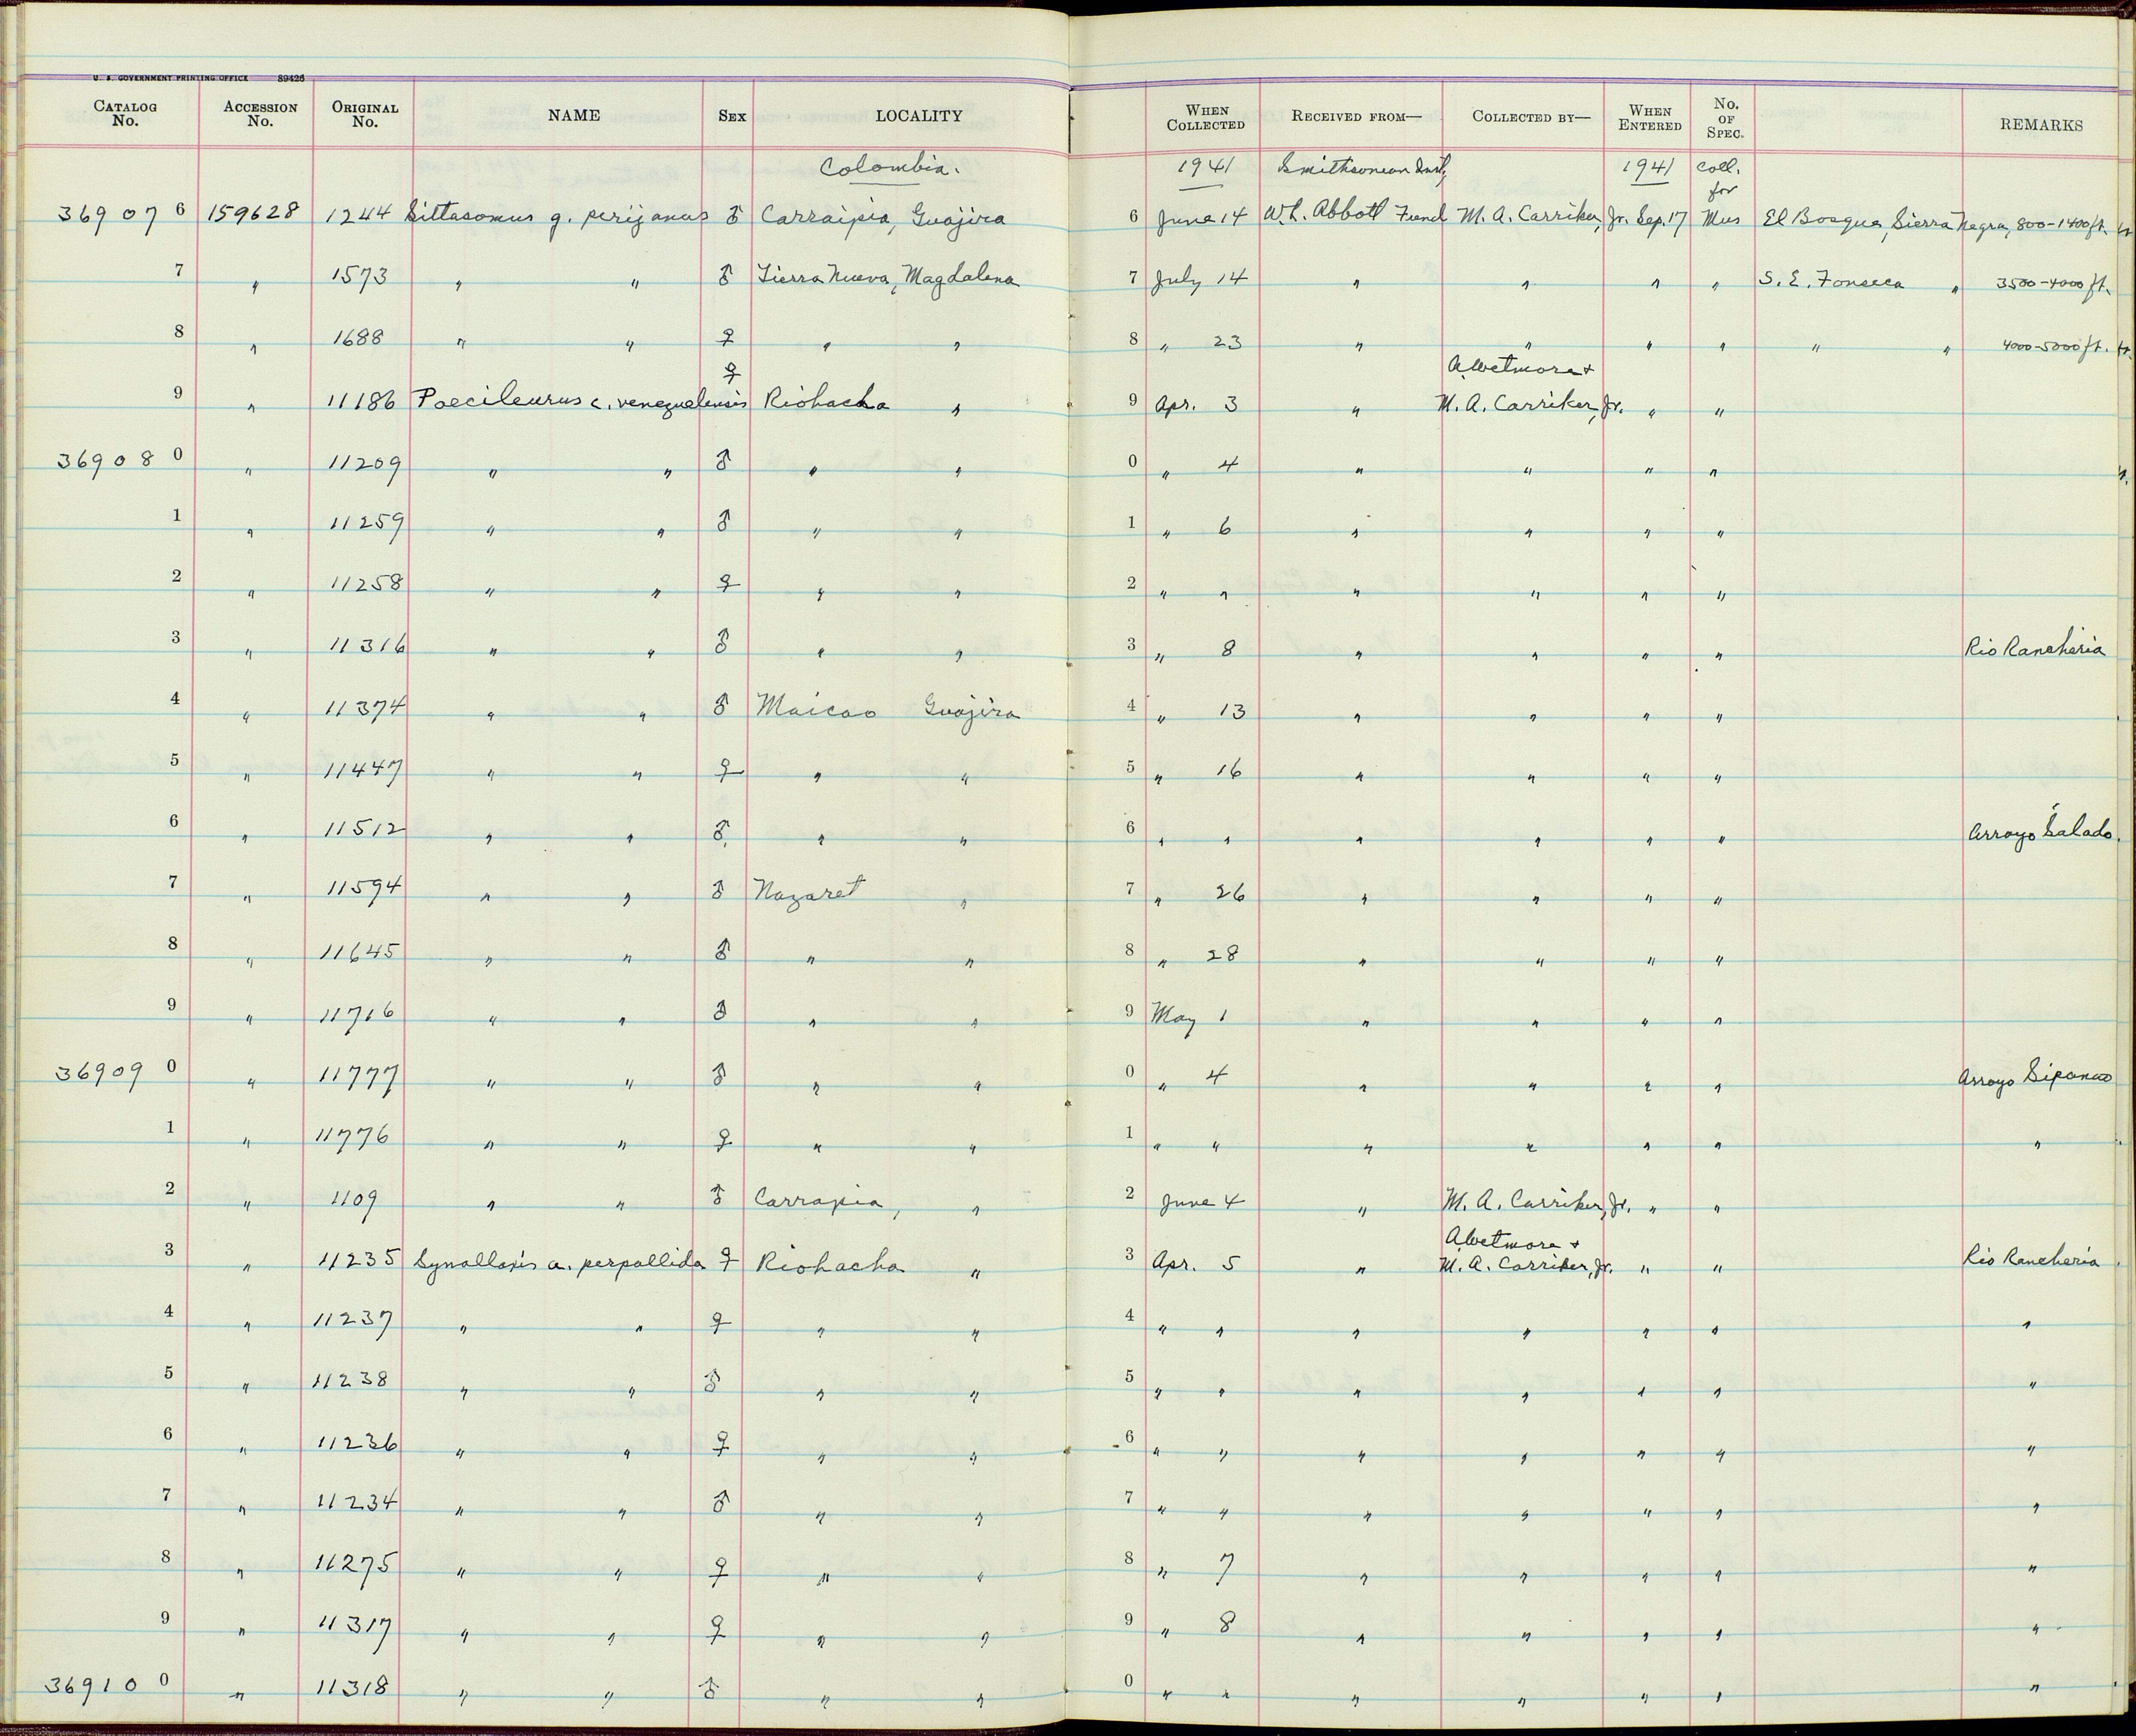 U. S. GOVERNMENT PRINTING OFFICE 89426
CATALOG No. ACCESSION No. ORIGINAL No. NAME SEX LOCALITY WHEN COLLECTED RECEIVED FROM— COLLECTED BY— WHEN ENTERED No. OF SPEC. REMARKS
Colombia. 1941 Smithsonian Inst, 1941 Coll. for
36907 6 159628 1244 Sittasomus g. perijanus ♂ Carraipia, Guajira 6 June 14 W. L. Abbott Fund M. A. Carriker, Jr. Sep. 17 Mus El Bosque, Sierra Negra, 800-1400 ft.
7 " 1573 " " ♂ Tierra Nueva, Magdalena 7 July 14 " " " " S. E. Fonseca " 3500-4000 ft.
8 " 1688 " " ♀ " " 8 " 23 " " " " " " 4000-5000 ft.
9 " 11186 Poecileurus c. venezuelensis ♀ Riohacha " 9 Apr. 3 " A. Wetmore + M. A. Carriker, Jr. " "
36908 0 " 11209 " " ♂ " " 0 " 4 " " " "
1 " 11259 " " ♂ " " 1 " 6 " " " "
2 " 11258 " " ♀ " " 2 " " " " " "
3 " 11316 " " ♂ " " 3 " 8 " " " " Rio Rancheria
4 " 11374 " " ♂ Maicao Guajira 4 " 13 " " " "
5 " 11447 " " ♀ " " 5 " 16 " " " "
6 " 11512 " " ♂ " " 6 " " " " " " Arroyo Salado.
7 " 11594 " " ♂ Nazaret " 7 " 26 " " " "
8 " 11645 " " ♂ " " 8 " 28 " " " "
9 " 11716 " " ♂ " " 9 May 1 " " " "
36909 0 " 11777 " " ♂ " " 0 " 4 " " " " Arroyo Sipanao
1 " 11776 " " ♀ " " 1 " " " " " " "
2 " 1109 " " ♂ Carrapia, " 2 June 4 " M. A. Carriker, Jr. " "
3 " 11235 Synallaxis a. perpallida ♀ Riohacha " 3 Apr. 5 " A. Wetmore + M. A. Carriker, Jr. " " Rio Rancheria
4 " 11237 " " ♀ " " 4 " " " " " " "
5 " 11238 " " ♂ " " 5 " " " " " " "
6 " 11236 " " ♀ " " 6 " " " " " " "
7 " 11234 " " ♂ " " 7 " " " " " " "
8 " 11275 " " ♀ " " 8 " 7 " " " " "
9 " 11317 " " ♀ " " 9 " 8 " " " " "
36910 0 " 11318 " " ♂ " " 0 " " " " " " "